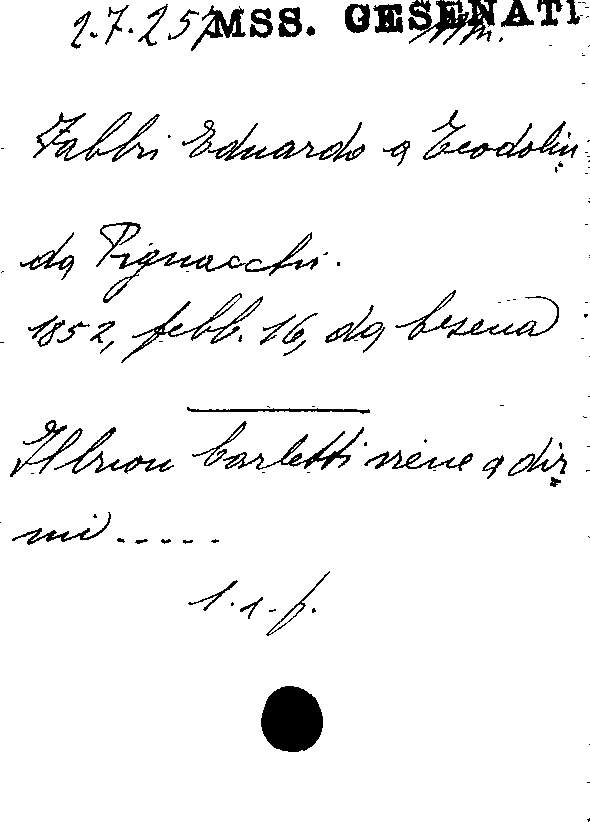 2.7.257 MSS. CESENATI
Fabbri Eduardo a Teodolin
da Pignacchi.
1852, febb. 16, da Cesena
Il buon Carletti viene a dir
mi .....
1. 1. f.